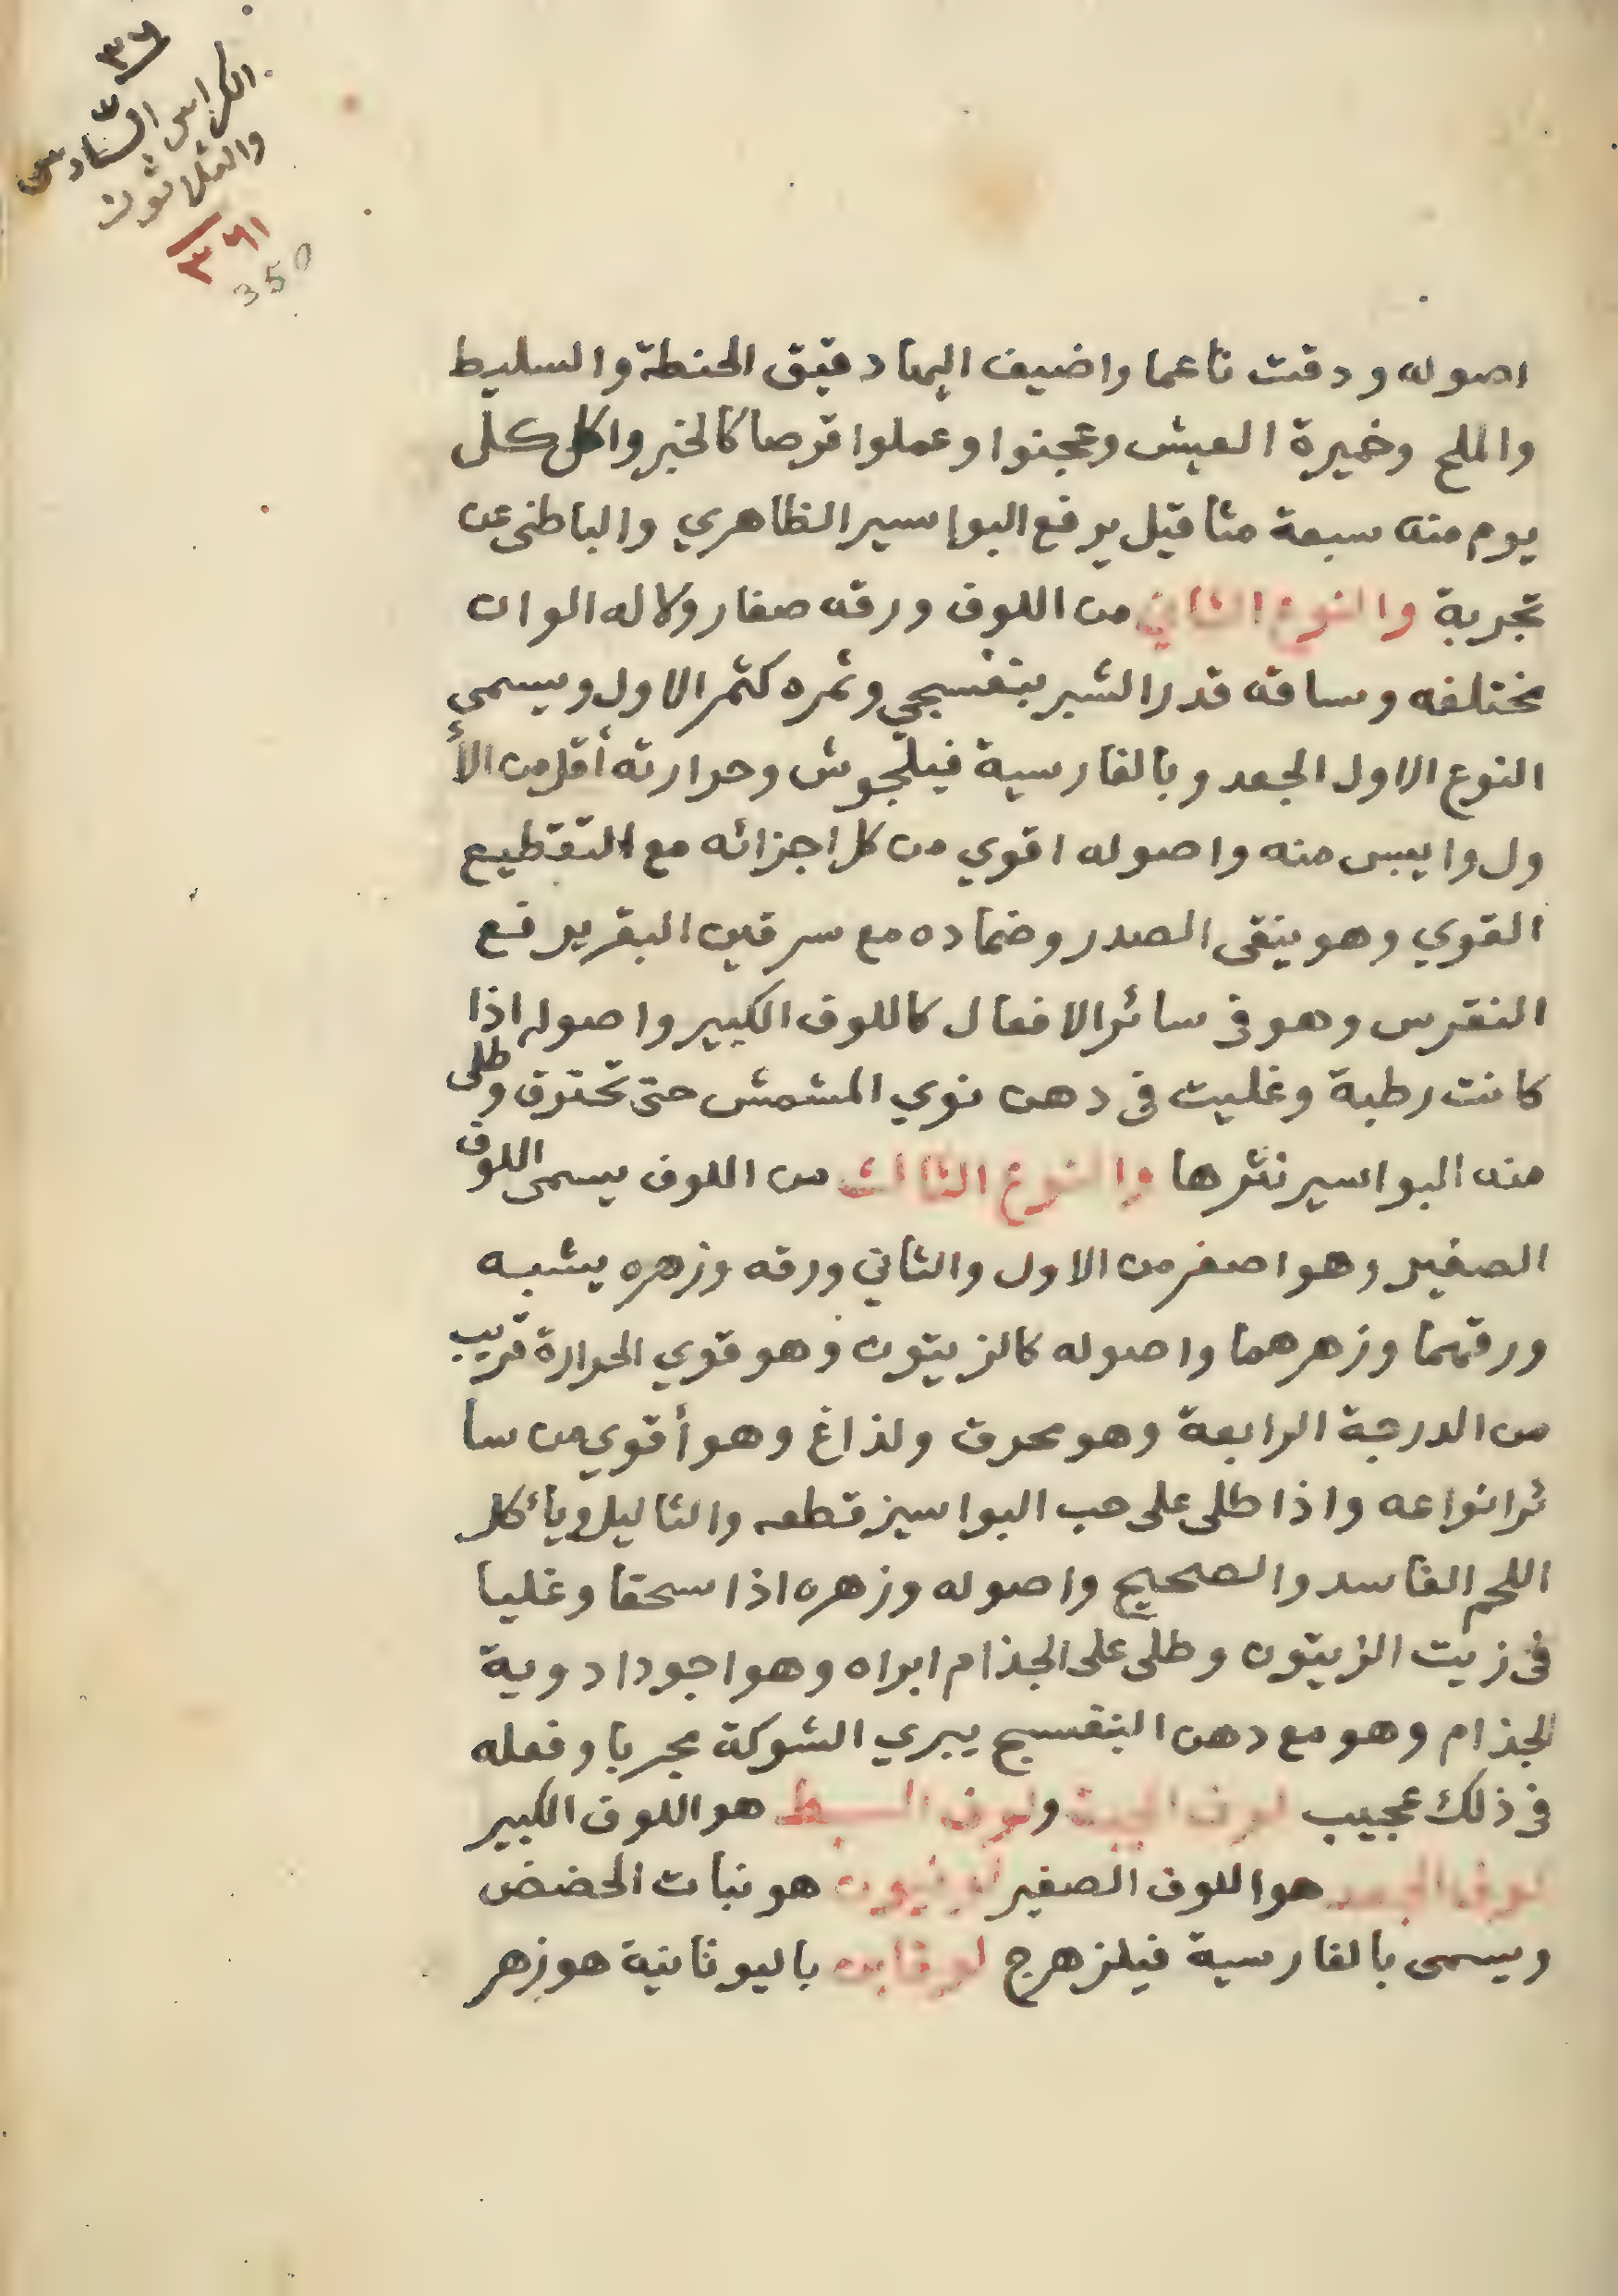 ٣٦
الكراس السادس
والثلاثون
٣٦١
350
اصوله ودقت ناعما واضيف اليها دقيق الحنطة والسليط
والملح وخميرة العيش وعجنوا وعملوا قرصا كالخبز واكل كل
يوم منه سبعة مثاقيل يرفع البواسير الظاهري والباطني عن
تجربة والنوع الثاني من اللوف ورقه صغار ولا له الوان
مختلفه وساقه قدر الشبر بنفسجي وثمره كثمر الاول ويسمى
النوع الاول الجعد وبالفارسية فيلجوش وحرارته أقل من الأ
ول وايبس منه واصوله اقوي من كل اجزائه مع التقطيع
القوي وهو ينقى الصدر وضماده مع سرقين البقر يرفع
النقرس وهو فى سائر الافعال كاللوف الكبير واصوله اذا
كانت رطبة وغليت فى دهن نوي المشمش حتى تحترق وطلى
منه البواسير نثرها والنوع الثالث من اللوف يسمى اللوف
الصغير وهو اصغر من الاول والثاني ورقه وزهره يشبه
ورقهما وزهرهما واصوله كالزيتون وهو قوي الحرارة قريب
من الدرجة الرابعة وهو محرق ولذاغ وهو أقوي من سا
ئر انواعه واذا طلى على حب البواسير قطعه والثاليل ويأكل
اللحم الفاسد والصحيح واصوله وزهره اذا سحقا وغليا
فى زيت الزيتون وطلى على الجذام ابراه وهو اجود ادوية
الجذام وهو مع دهن البنفسج يبري الشوكة مجربا وفعله
فى ذلك عجيب لوف الحية ولوف السبط هو اللوف الكبير
لوف الجعد هو اللوف الصغير لوفيون هو نبات الحضض
ويسمى بالفارسية فيلزهرج لوقاين باليونانية هو زهر